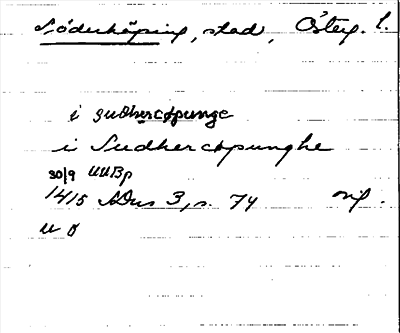 Söderköping, stad, Österg. l.
i sudhercøpunge
i Sudhercøpunghe
30/9 UUBp
1415 SDns 3, s. 74 orig.